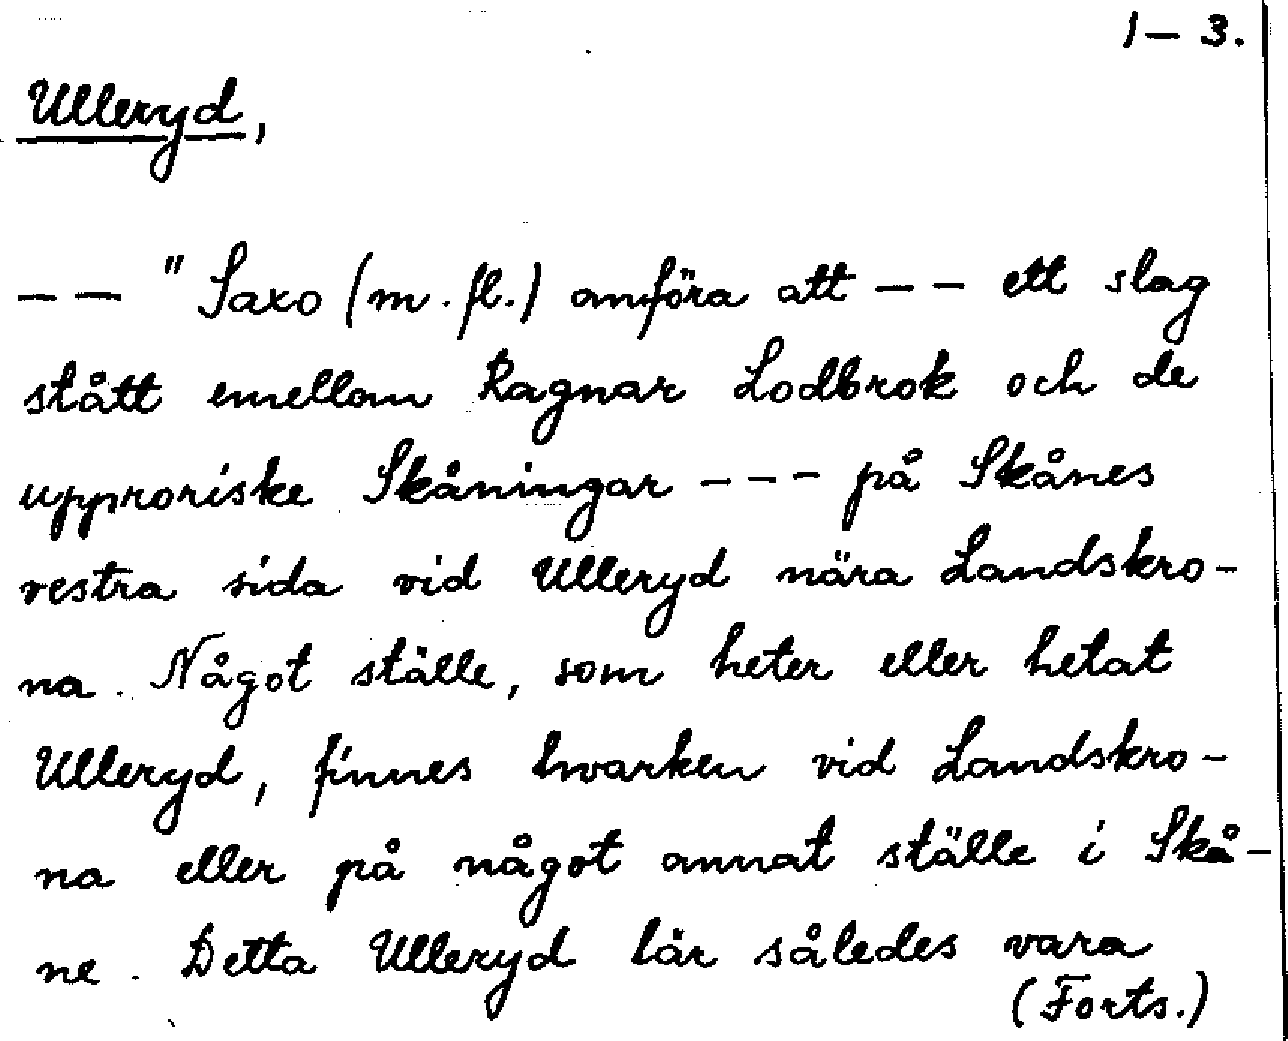 1 – 3.
Ulleryd,
– – " Saxo (m. fl.) anföra att – – ett slag
stått emellan Ragnar Lodbrok och de
upproriske Skåningar – – – på Skånes
vestra sida vid Ulleryd nära Landskro-
na. Något ställe, som heter eller hetat
Ulleryd, finnes hvarken vid Landskro-
na eller på något annat ställe i Skå-
ne. Detta Ulleryd lär således vara
(Forts.)